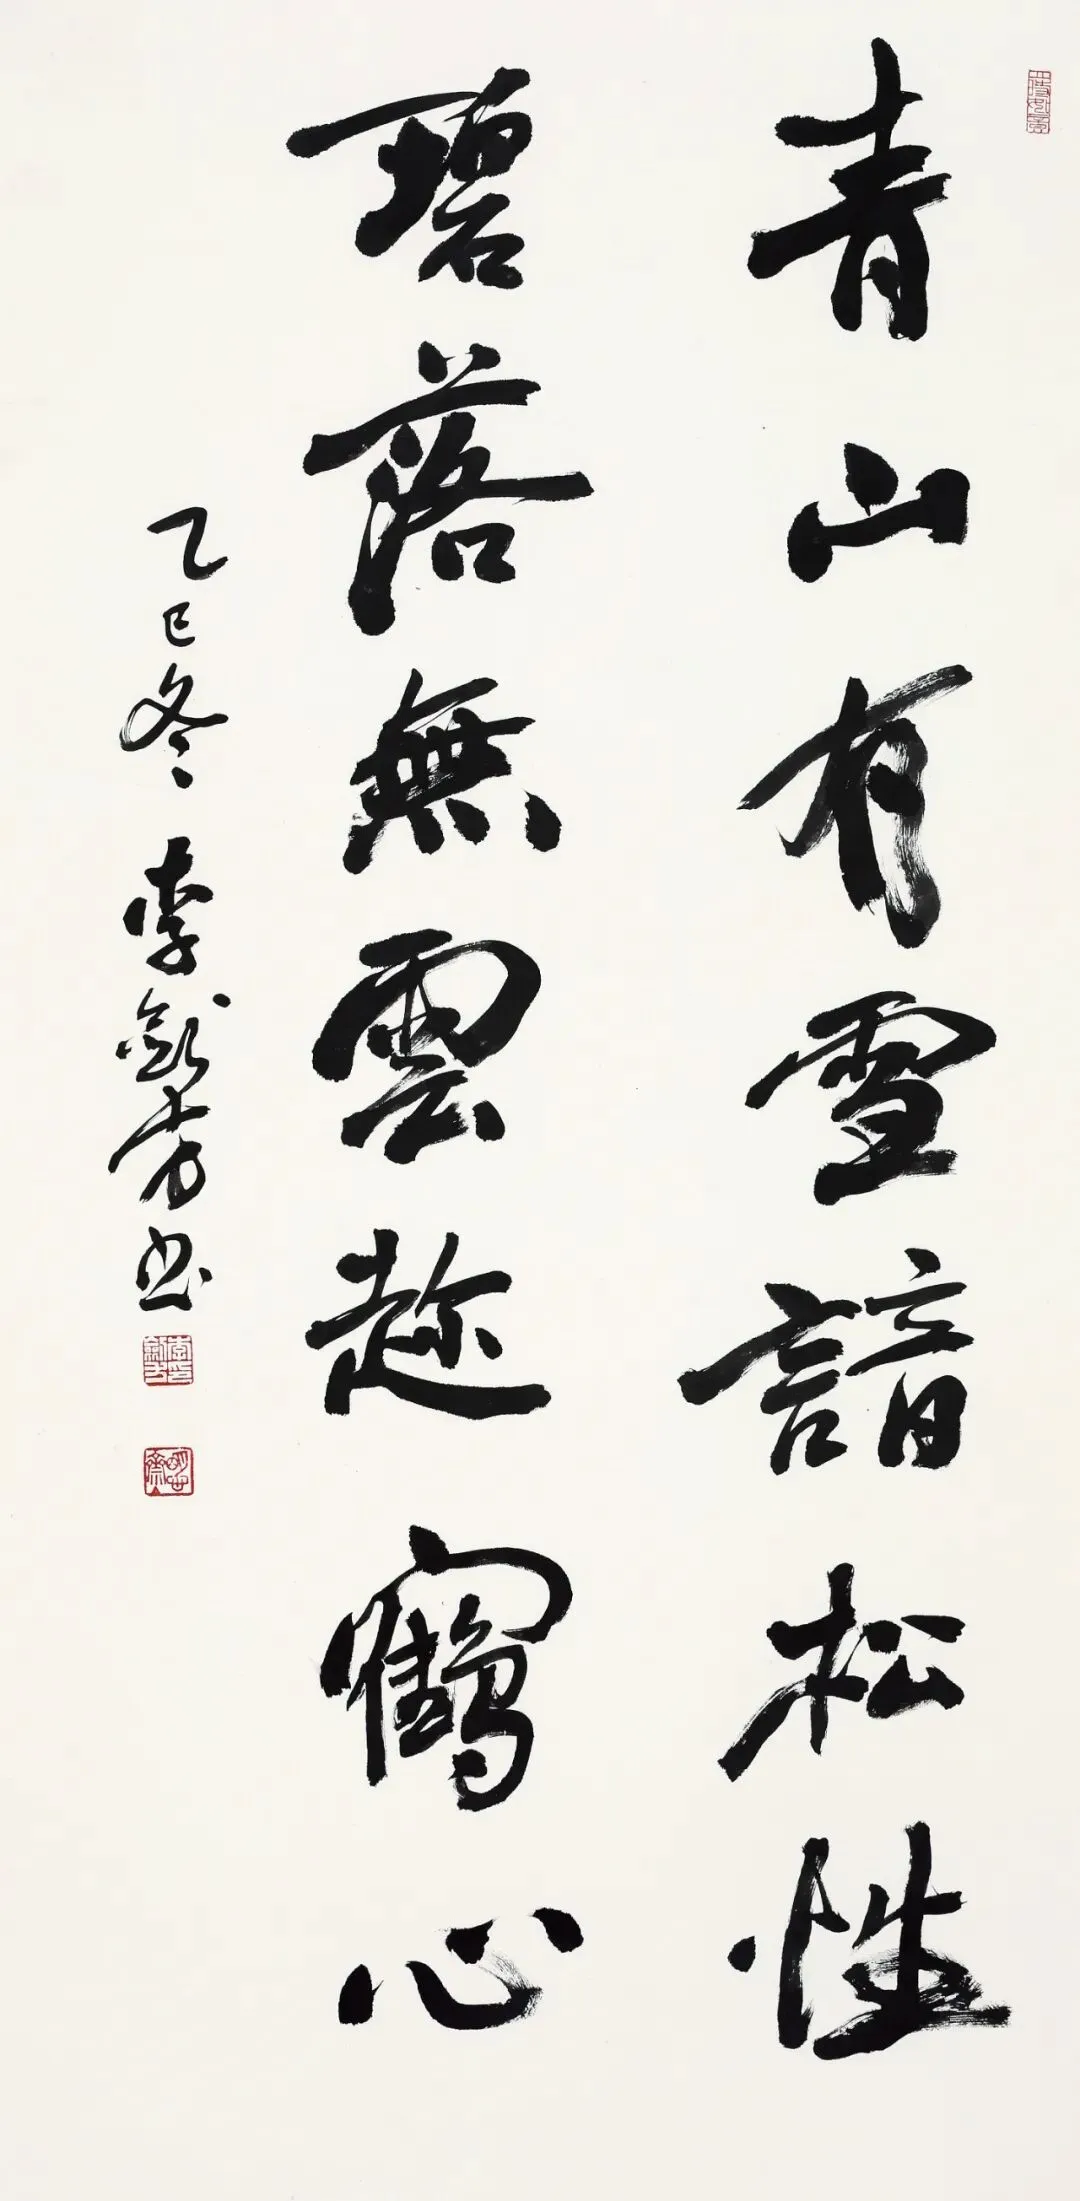 青山有雪諳松性
碧落無雲趁鶴心
乙巳冬 李劍方书